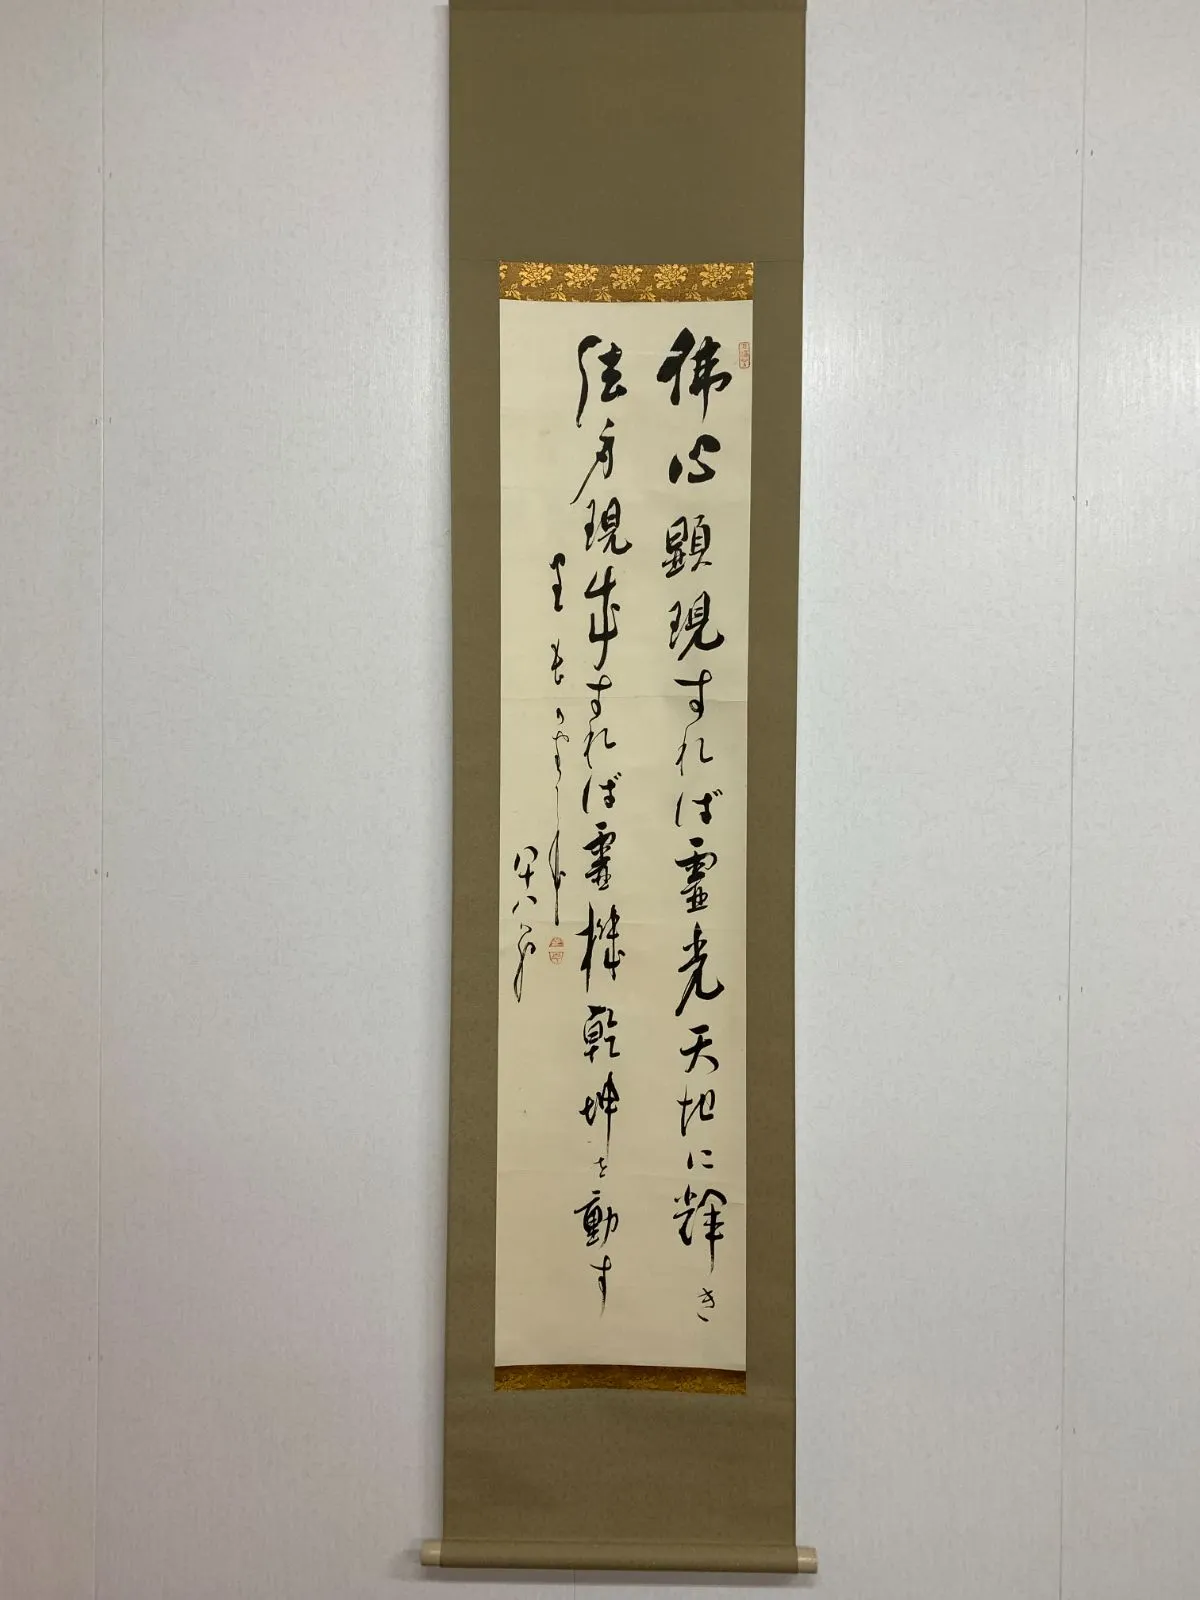 佛心顕現すれば霊光天地に輝き
法身現成すれば霊機乾坤を動す